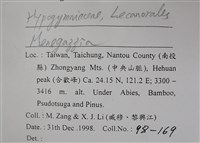 Hypogymniaceae, Lecanorales
Menegazzia
Loc. : Taiwan, Taichung, Nantou County (南投
縣) Zhongyang Mts. (中央山脈), Hehuan
peak (合歡峰) Ca. 24.15 N, 121.2 E; 3300 -
3416 m. alt. Under Abies, Bamboo,
Psudotsuga and Pinus.
Coll. : M. Zang & X. J. Li (臧穆・黎興江)
Date : 31th Dec .1998. Coll.No.: 98-169